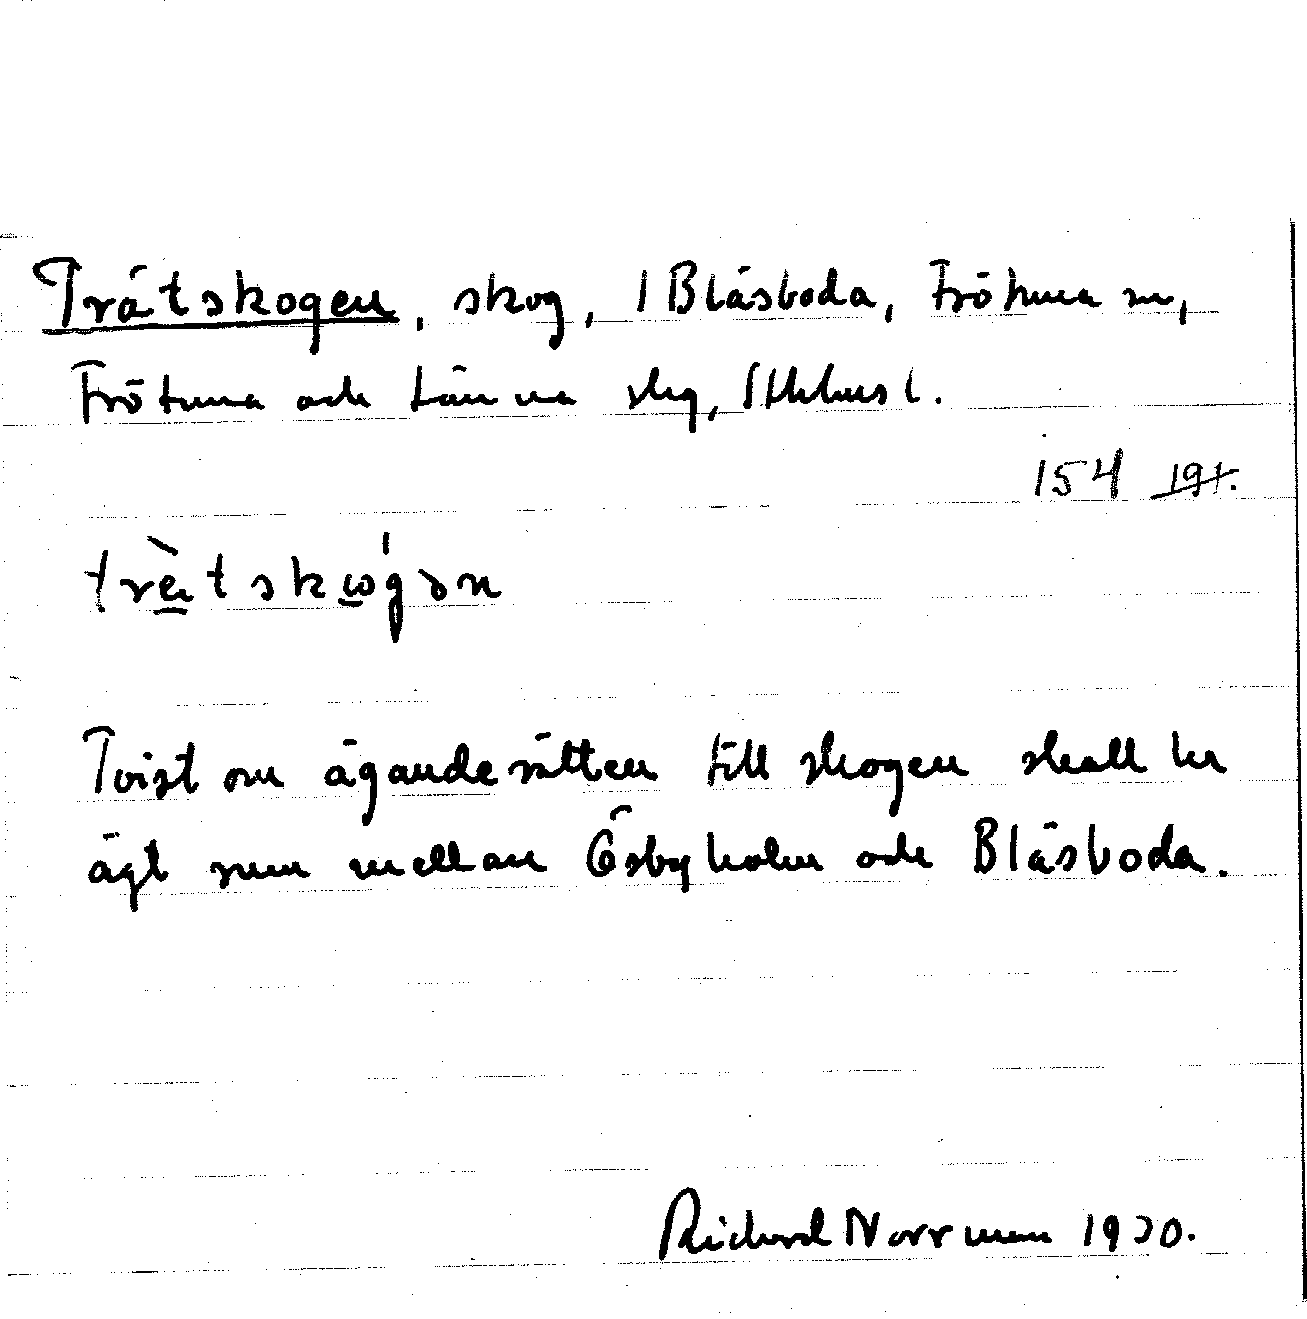 Trätskogen, skog, / Bläsboda, Frötuna sn,
Frötuna och Länna skg, Sthlms l.
154
trètskógən
Tvist om äganderätten till skogen skall ha
ägt rum mellan Ösbyholm och Bläsboda.
Richard Norrman 1930.